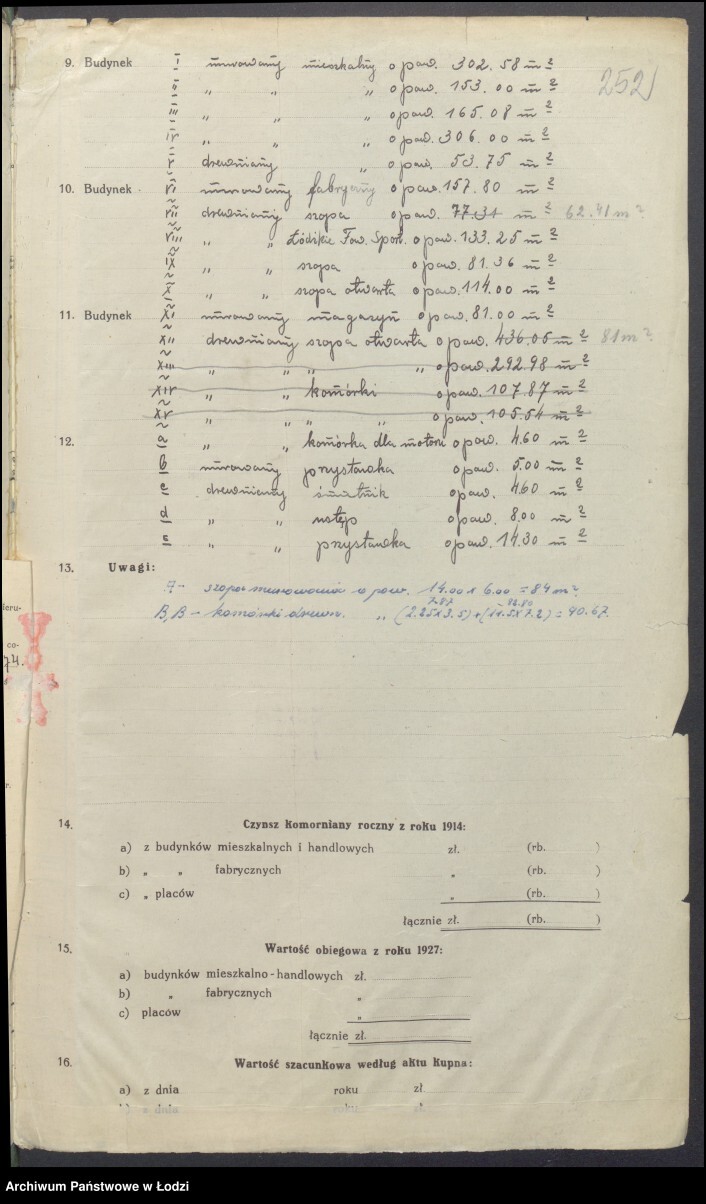 252
9. Budynek I murowany mieszkalny o pow. 302.58 m²
II „ „ „ o pow. 153.00 m²
III „ „ „ o pow. 165.08 m²
IV „ „ „ o pow. 306.00 m²
V drewniany „ o pow. 53.75 m²
10. Budynek VI murowany fabryczny o pow. 157.80 m²
VII drewniany szopa o pow. 77.31 m² 62.41 m²
VIII „ „ Łódzkie Tow. Sport. o pow. 133.25 m²
IX „ „ szopa o pow. 81.36 m²
X „ „ szopa otwarta o pow. 114.00 m²
11. Budynek XI murowany magazyn o pow. 81.00 m²
XII drewniany szopa otwarta o pow. 436.05 m² 81 m²
XIII „ „ „ „ o pow. 292.98 m²
XIV „ „ komórki o pow. 107.87 m²
XV „ „ „ „ o pow. 105.54 m²
12. a „ „ komórka dla motoru o pow. 4.60 m²
b murowany przystawka o pow. 5.00 m²
c drewniany śmietnik o pow. 4.60 m²
d „ „ ustęp o pow. 8.00 m²
e „ „ przystawka o pow. 14.30 m²
13. Uwagi:
A – szopa murowana o pow. 14.00 x 6.00 = 84 m²
7.87 82.80
B, B – komórki drewn. „ (2.25 x 3.5) + (11.5 x 7.2) = 90.67
ieru-
co-
74.
r.
14. Czynsz komorniany roczny z roku 1914:
a) z budynków mieszkalnych i handlowych zł. (rb. )
b) „ „ fabrycznych „ (rb. )
c) „ placów „ (rb. )
łącznie zł. (rb. )
15. Wartość obiegowa z roku 1927:
a) budynków mieszkalno-handlowych zł.
b) „ fabrycznych „
c) placów „
łącznie zł.
16. Wartość szacunkowa według aktu kupna:
a) z dnia roku zł
b) z dnia roku zł
Archiwum Państwowe w Łodzi